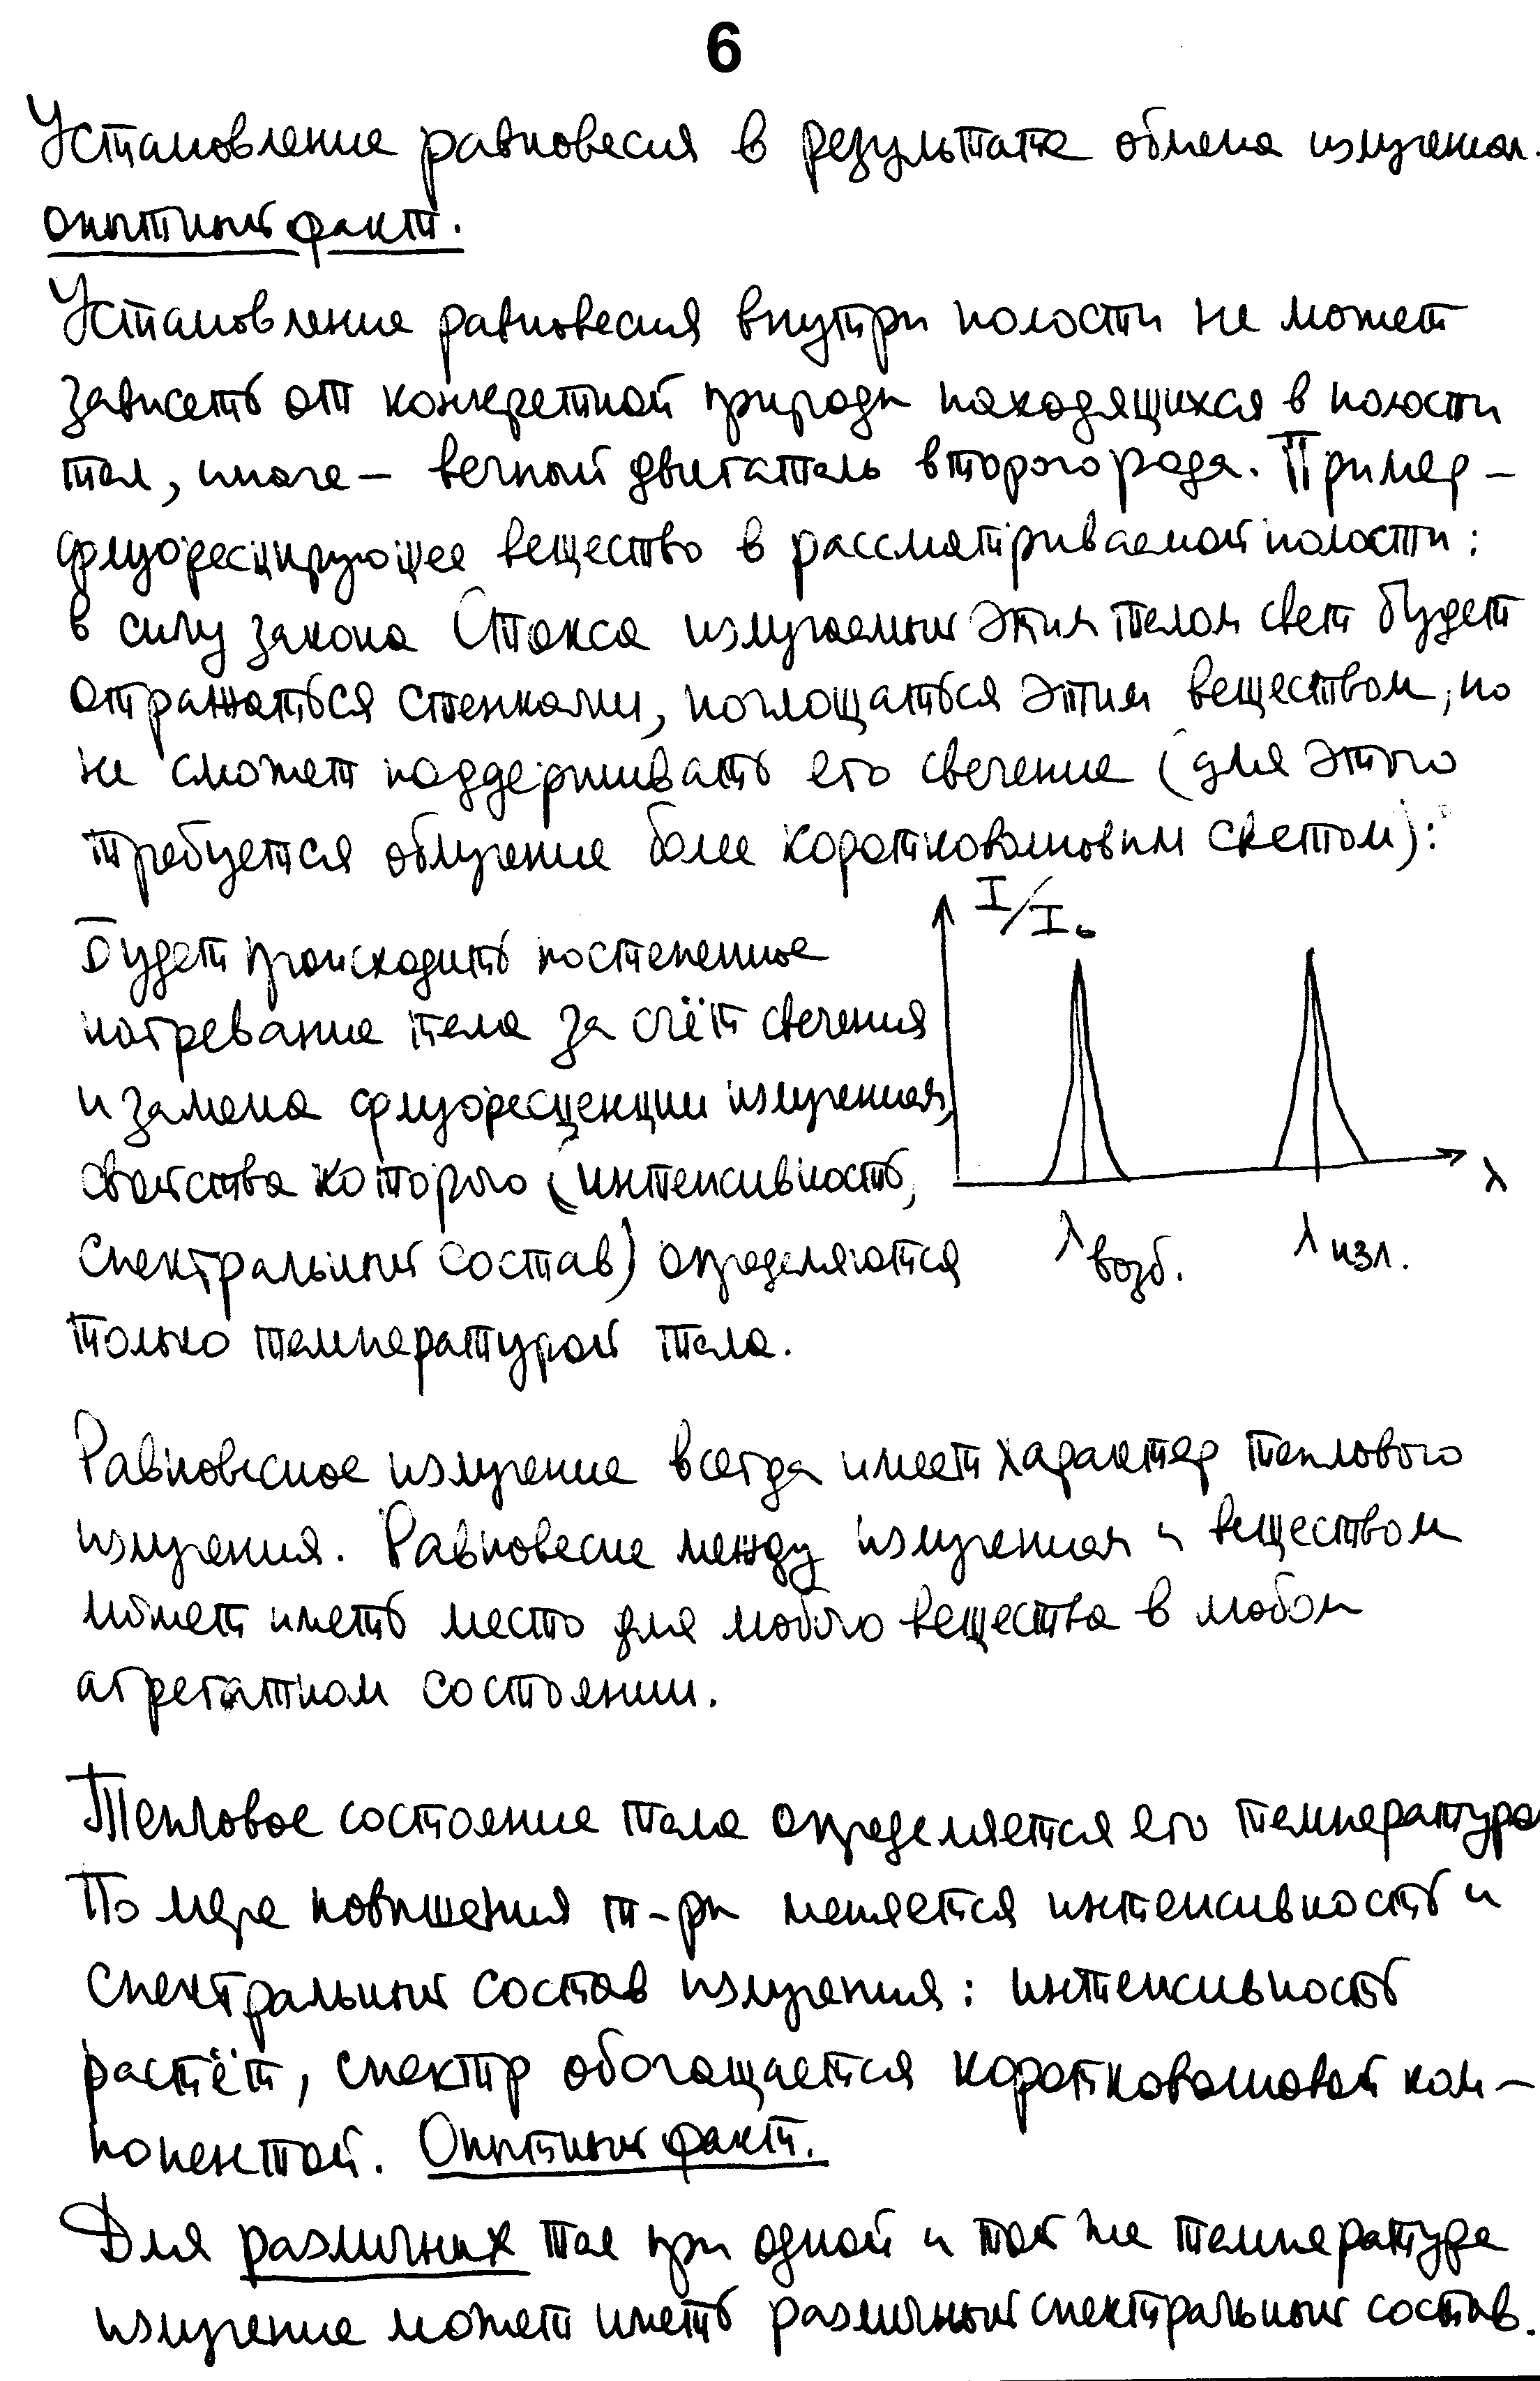 6
Установление равновесия в результате обмена излучением.
опытный факт.
Установление равновесия внутри полости не может
зависеть от конкретной природы находящихся в полости
тел, иначе – вечный двигатель второго рода. Пример –
флуоресцирующее вещество в рассматриваемой полости:
в силу закона Стокса излучаемый этим телом свет будет
отражаться стенками, поглощаться этим веществом, но
не сможет поддерживать его свечение (для этого
требуется облучение более коротковолновым светом):
I/I₀
Будет происходить постепенное
нагревание тела за счёт свечения
и замена флуоресценции излучением,
свойства которого (интенсивность,
λ
спектральный состав) определяются
λ возб.
λ изл.
только температурой тела.
Равновесное излучение всегда имеет характер теплового
излучения. Равновесие между излучением и веществом
может иметь место для любого вещества в любом
агрегатном состоянии.
Тепловое состояние тела определяется его температурой
По мере повышения т-ры меняется интенсивность и
спектральный состав излучения: интенсивность
растёт, спектр обогащается коротковолновой ком–
понентой. Опытный факт.
Для различных тел при одной и той же температуре
излучение может иметь различный спектральный состав.